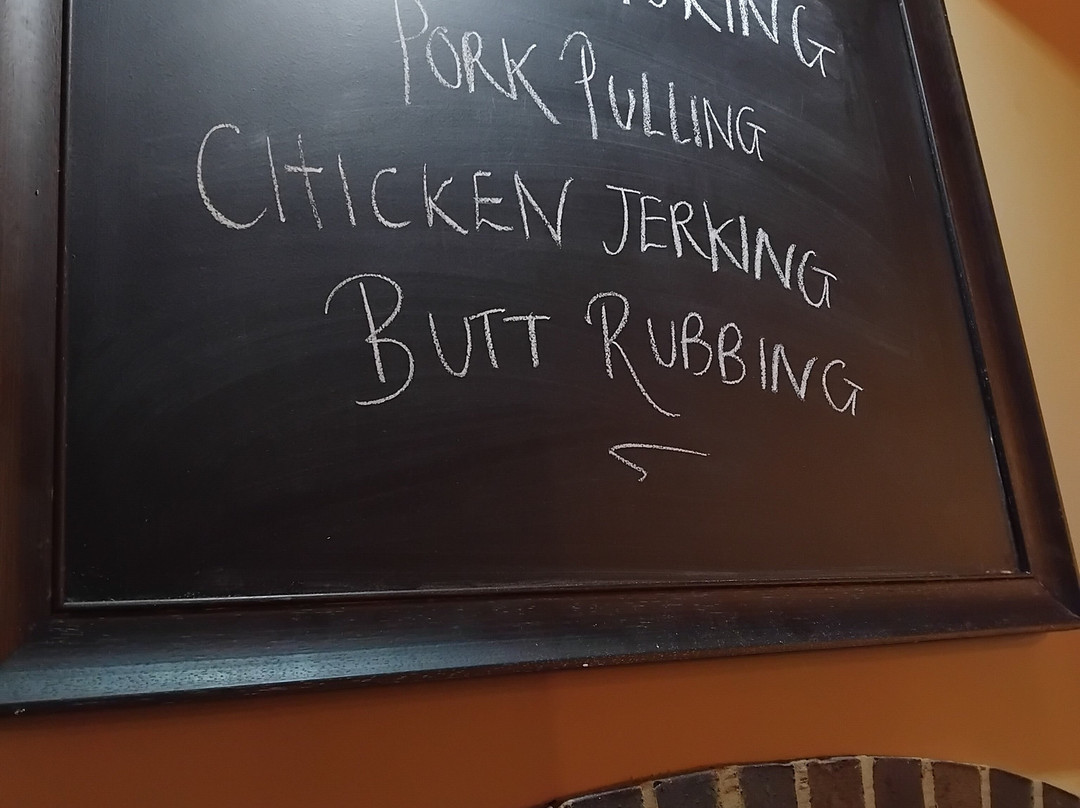 PORK PULLING
CHICKEN JERKING
BUTT RUBBING